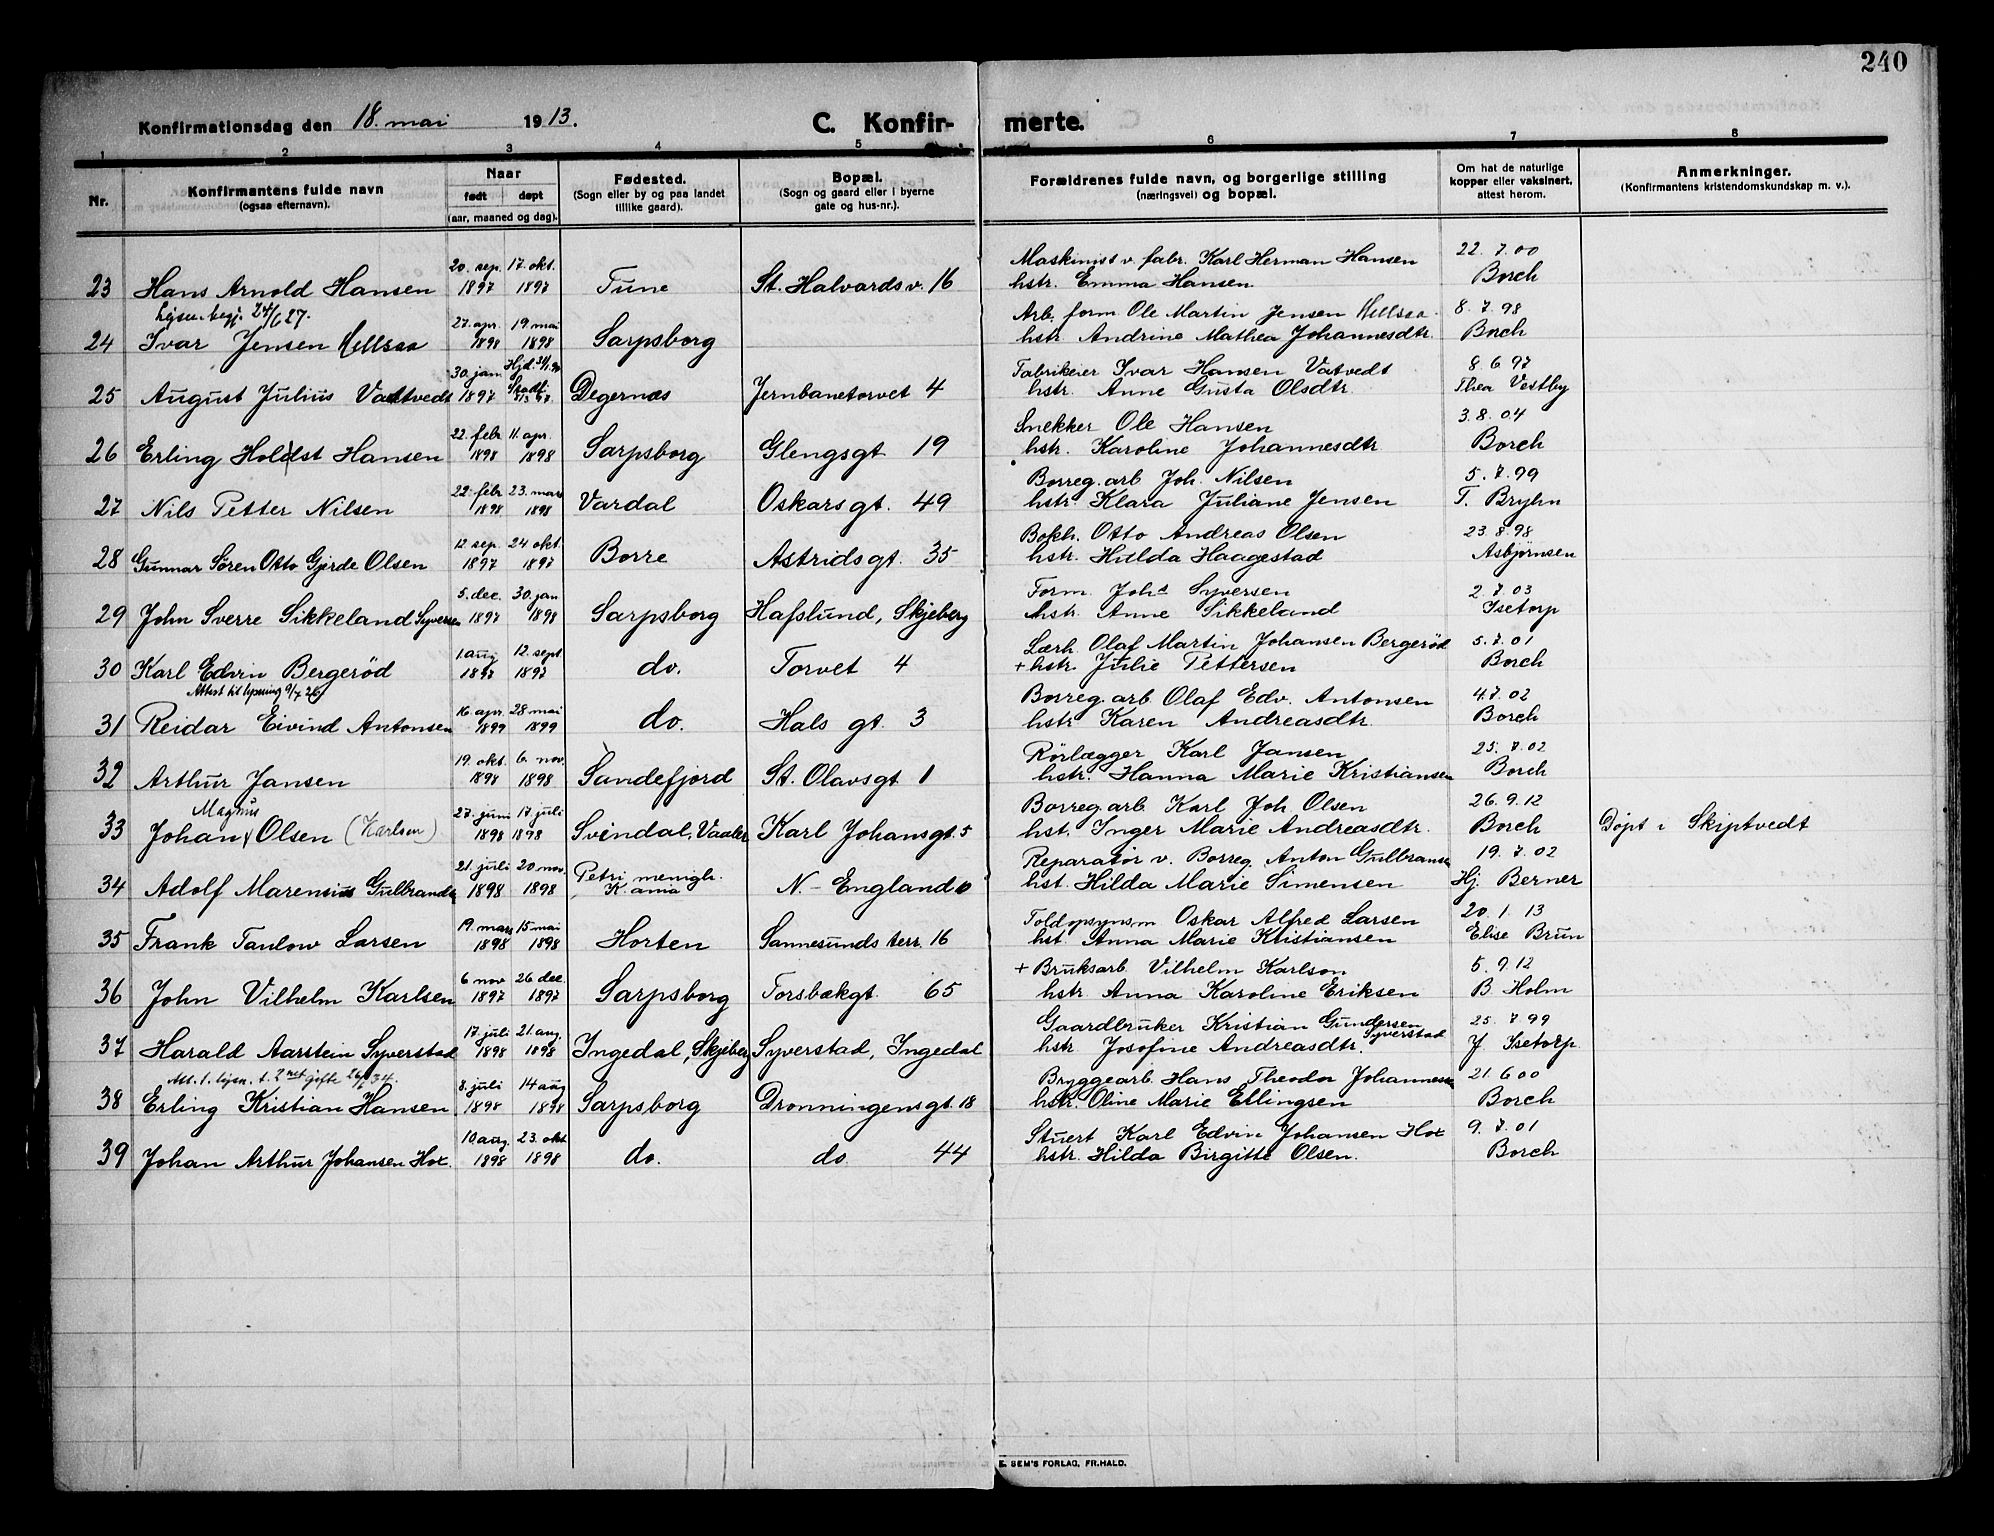 240
Konfirmationsdag den 18. mai 1913.
C. Konfir- merte.
1 2 3 4 5 6 7 8
Nr.
Konfirmantens fulde navn
(ogsaa efternavn).
Naar
født døpt
(aar, maaned og dag).
Fødested.
(Sogn eller by og paa landet
tillike gaard).
Bopæl.
(Sogn og gaard eller i byerne
gate og hus-nr.).
Forældrenes fulde navn, og borgerlige stilling
(næringsvei) og bopæl.
Om hat de naturlige
kopper eller vaksinert,
attest herom.
Anmerkninger.
(Konfirmantens kristendomskundskap m. v.).
20. sep. 17. okt. Maskinist v. fabr. Karl Herman Hansen 22. 7. 00
23 Hans Arnold Hansen 1897 1897 Tune St. Halvardsv. 16 hstr. Emma Hansen Borch
24/6 27.
27. apr. 19. mai Arb. form. Ole Martin Jensen Hellsaa 8. 7. 98
24 Ivar Jensen Hellsaa 1898 1898 Sarpsborg hstr. Andrine Mathea Johannesdtr. Borch
30. jan. Hjd. Fabrikeier Ivar Hansen Vatvedt 8 6 97
25 August Julius Vatvedt 1897 Degernæs Jernbanetorvet 4 hstr. Anne Gusta Olsdtr. Thea Vestby
22. febr. 11. apr. Snekker Ole Hansen 3. 8. 04
26 Erling Holst Hansen 1898 1898 Sarpsborg Glengsgt 19 hstr. Karoline Johannesdtr Borch
22. febr 23. mars Borreg. arb. Joh. Nilsen 5. 7. 99
27 Nils Petter Nilsen 1898 1898 Vardal Oskarsgt. 49 hstr. Klara Juliane Jensen T. Bryhn
12. sep. 24 okt. Bokh. Otto Andreas Olsen 23. 8. 98
28 Gunnar Sören Otto Gjerde Olsen 1897 1897 Borre Astridsgt. 35 hstr. Hulda Haagestad Asbjørnsen
5. dec. 30. jan Form. Johs Syversen 2. 7. 03
29 John Sverre Sikkeland Syversen 1897 1898 Sarpsborg Hafslund, Skjeberg hstr. Anne Sikkeland Isetorp
1. aug 12. sept Lærh. Olaf Martin Johansen Bergerød 5. 7. 01
30 Karl Edvin Bergerød 1897 1897 do. Torvet 4 + hstr. Julie Pettersen Borch
Attest til lysning 9/7 26
16. apr. 28 mai Borreg. arb. Olaf Edv. Antonsen 4. 7. 02
31 Reidar Eivind Antonsen 1899 1899 do. Hals gt. 3 hstr. Karen Andreasdtr. Borch
19. okt. 6. nov. Rörlægger Karl Jansen 25. 7. 02
32 Arthur Jansen 1898 1898 Sandefjord St. Olavsgt 1 hstr. Hanna Marie Kristiansen Borch
Magnus 27. juni 17. juli Borreg. arb. Karl Joh. Olsen 26. 9. 12
33 Johan Olsen (Karlsen) 1898 1898 Svindal, Vaaler Karl Johansgt. 5 hst. Inger Marie Andreasdtr. Borch Døpt i Skiptvedt
21. juli 20. nov. Petri menigh. Reparatør v. Borreg. Anton Gulbransen 19. 7. 02
34 Adolf Marensius Gulbrandsen 1898 1898 K.ania N.- England 10 hst. Hilda Marie Simensen Hj. Berner
19. mars 15 mai Toldopsynsm Oskar Alfred Larsen 20. 1. 13
35 Frank Tanlow Larsen 1898 1898 Horten Sannesunds terr. 16 hst. Anna Marie Kristiansen Elise Brun
6 nov 26 dec. + Bruksarb. Vilhelm Karlson 5. 9. 12
36 John Vilhelm Karlsen 1897 1897 Sarpsborg Torsbækgt. 65 hstr. Anna Karoline Eriksen B. Holm
17. juli 21. aug. Gaardbruker Kristian Gundersen Syverstad 25. 7. 99
37 Harald Aarstein Syverstad 1898 1898 Ingedal, Skjeberg Syverstad, Ingedal hstr Josefine Andreasdtr. J. Isetorp
Att. t. lysn. t. 2net gifte 34.
8. juli 14 aug Bryggearb. Hans Theodor Johannessen 21. 6 00
38 Erling Kristian Hansen 1898 1898 Sarpsborg Dronningensgt. 18 hstr. Oline Marie Ellingsen Borch
10 aug. 23. okt Stuert Karl Edvin Johansen Hox 9. 7. 01
39 Johan Arthur Johansen Hox. 1898 1898 do. do. 44 hstr. Hilda Birgitte Olsen. Borch
E. SEM'S FORLAG, FR.HALD.